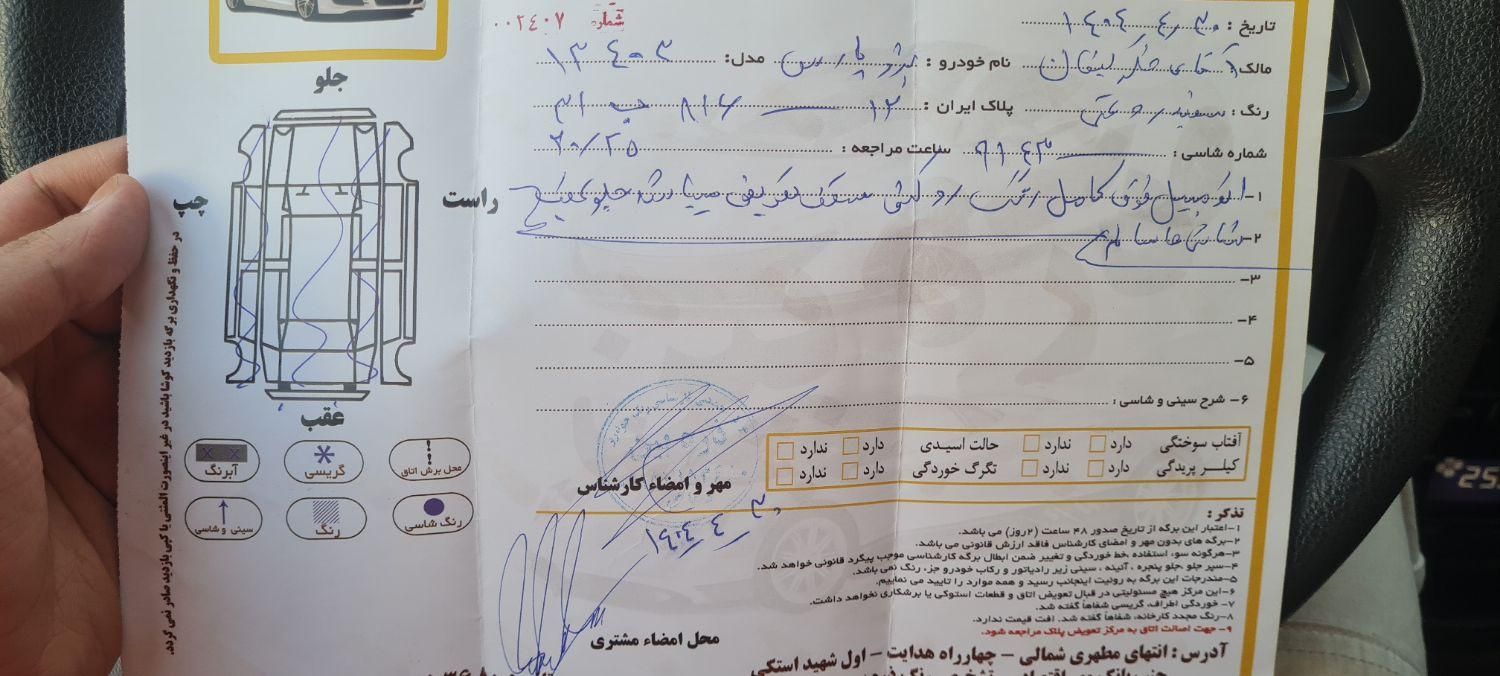 شماره ۰۰۲۴۰۷
تاریخ : ۱۴۰۴٫۴٫۳۰
مالک: آقای
نام خودرو : پژو پارس
مدل: ۱۴۰۳
رنگ : سفید روغنی
پلاک ایران : ۱۲
شماره شاسی :
ساعت مراجعه : ۲۰/۲۵
۱- اتومبیل فوق کامل رنگ روکشی سقف تعریفی میباشد جلوی
۲- شاش ها سالم
۳-
۴-
۵-
۶- شرح سینی و شاسی :
جلو
چپ
راست
عقب
محل برش اتاق
گریسی
آبرنگ
رنگ شاسی
رنگ
سینی و شاسی
در حفظ و نگهداری برگه بازدید کوشا باشید در غیر اینصورت المثنی یا کپی بازدید صادر نمی گردد.
آفتاب سوختگی دارد ندارد حالت اسیدی دارد ندارد
کیلـر پریدگی دارد ندارد تگرگ خوردگی دارد ندارد
مهر و امضاء کارشناس
۱۴۰۴٫۴٫۳۰
محل امضاء مشتری
تذکر :
۱-اعتبار این برگه از تاریخ صدور ۴۸ ساعت (۲روز) می باشد.
۲-برگه های بدون مهر و امضای کارشناس فاقد ارزش قانونی می باشد.
۳-هرگونه سوء استفاده ،خط خوردگی و تغییر ضمن ابطال برگه کارشناسی موجب پیگرد قانونی خواهد شد.
۴-سپر جلو ،جلو پنجره ، آئینه ، سینی زیر رادیاتور و رکاب خودرو جزء رنگ نمی باشد.
۵-مندرجات این برگه به روئیت اینجانب رسید و همه موارد را تایید می نماییم.
۶-این مرکز هیچ مسئولیتی در قبال تعویض اتاق و قطعات استوکی یا برشکاری نخواهد داشت.
۷- خوردگی اطراف، گریسی شفاهاً گفته شد.
۸-رنگ مجدد کارخانه، شفاهاً گفته شد. افت قیمت ندارد.
۹- جهت اصالت اتاق به مرکز تعویض پلاک مراجعه شود.
آدرس : انتهای مطهری شمالی – چهارراه هدایت – اول شهید استکی